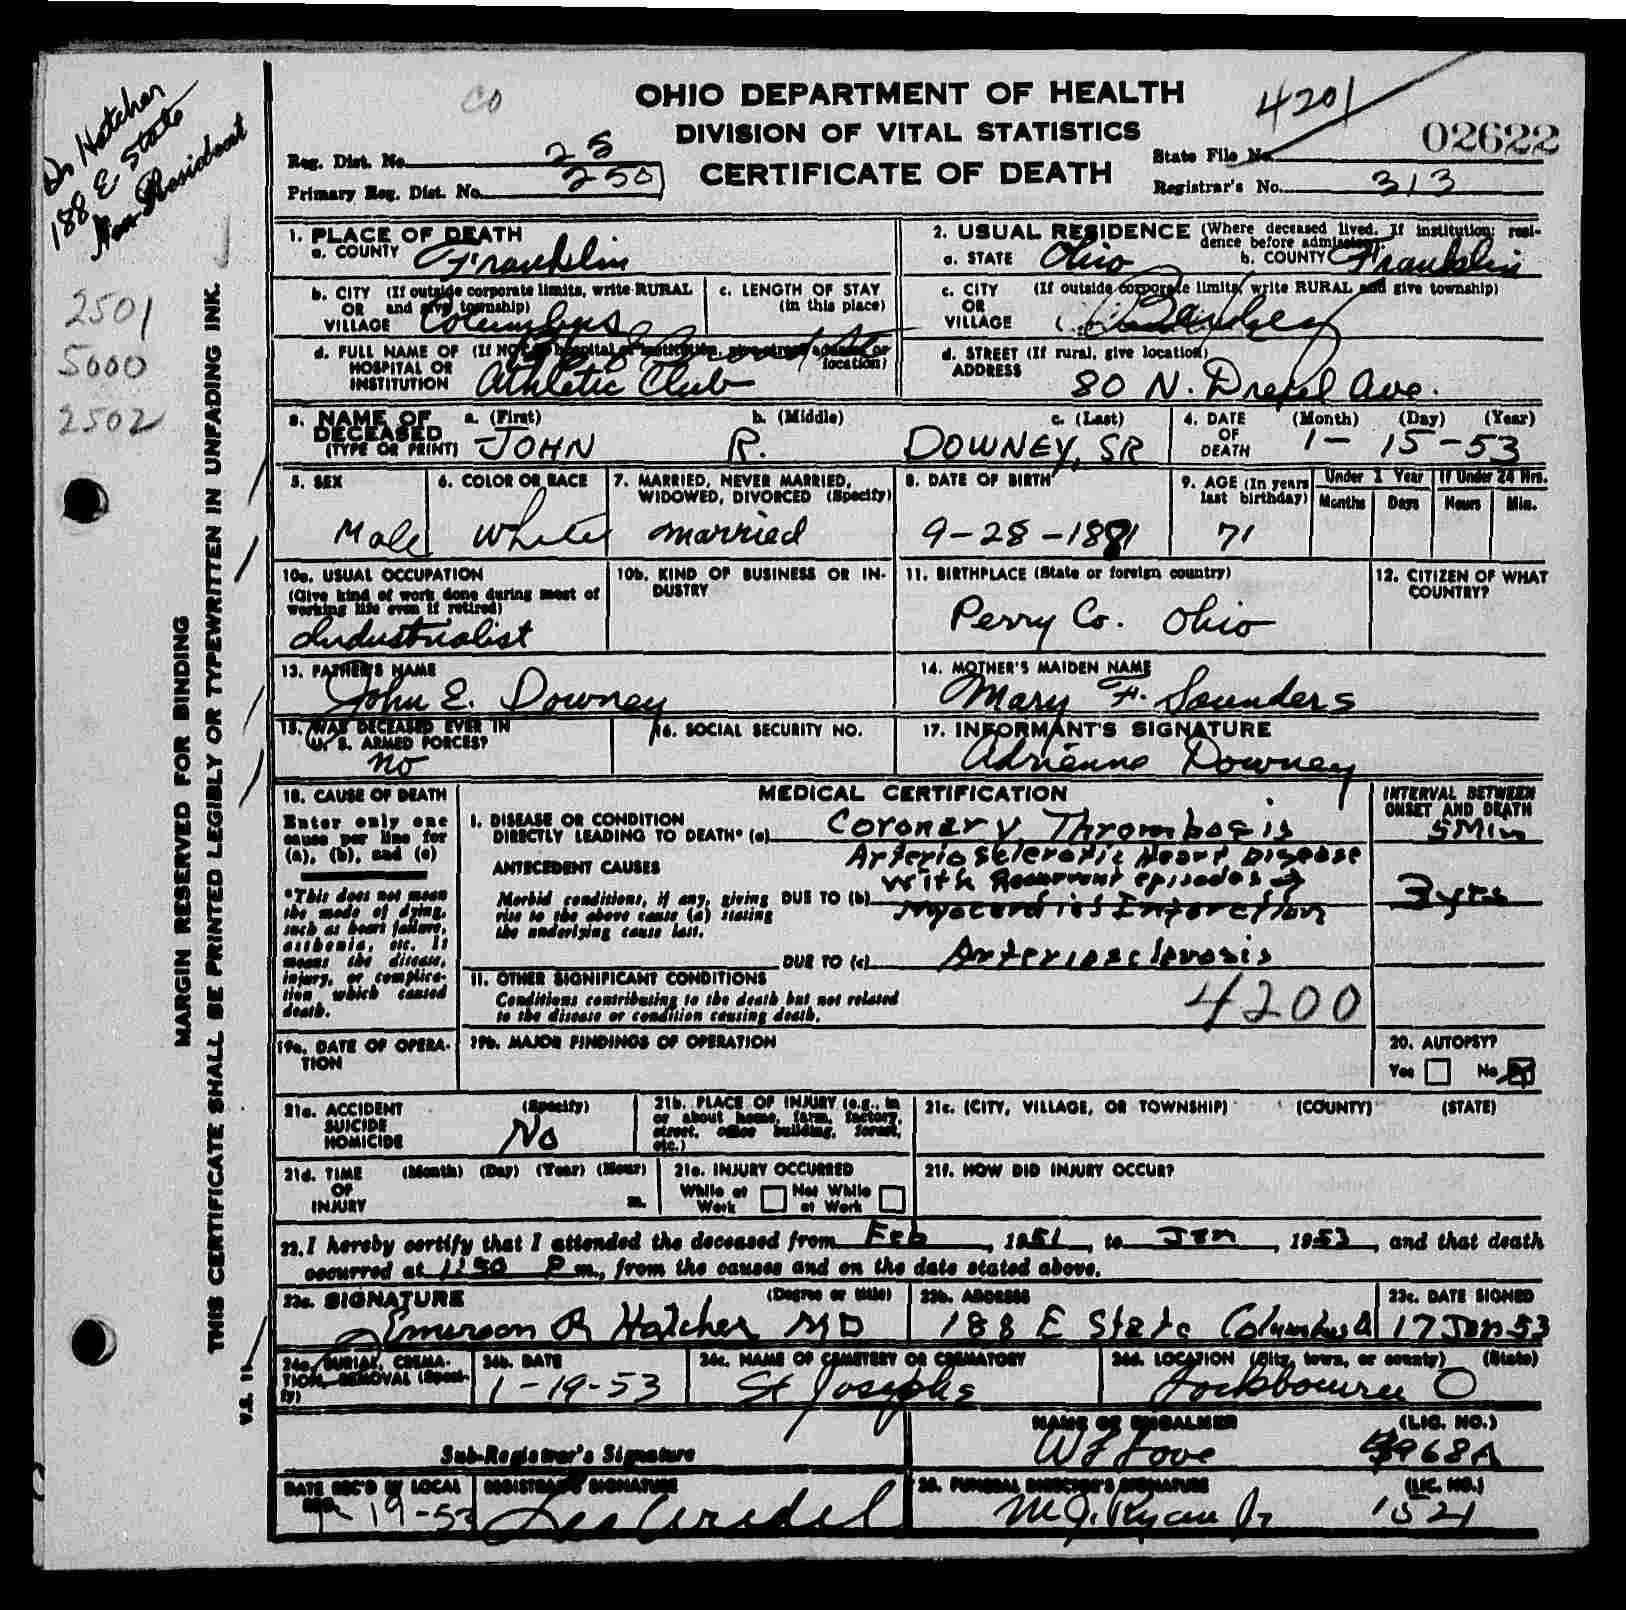 Dr Hatcher
188 E State
Non-Resident
2501
5000
2502
MARGIN RESERVED FOR BINDING
THIS CERTIFICATE SHALL BE PRINTED LEGIBLY OR TYPEWRITTEN IN UNFADING INK.
V.S. 11
CO
OHIO DEPARTMENT OF HEALTH
DIVISION OF VITAL STATISTICS
CERTIFICATE OF DEATH
4201
Reg. Dist. No. 25
Primary Reg. Dist. No. 250
State File No. 02622
Registrar's No. 313
1. PLACE OF DEATH
a. COUNTY Franklin
2. USUAL RESIDENCE (Where deceased lived. If institution: resi-
dence before admission).
a. STATE Ohio b. COUNTY Franklin
b. CITY (If outside corporate limits, write RURAL
OR and give township)
VILLAGE Columbus
c. LENGTH OF STAY
(in this place)
c. CITY (If outside corporate limits, write RURAL and give township)
OR
VILLAGE
d. FULL NAME OF (If NOT in hospital or institution, give street address or
HOSPITAL OR location)
INSTITUTION Athletic Club
d. STREET (If rural, give location)
ADDRESS 80 N. Drexel Ave.
3. NAME OF DECEASED (TYPE OR PRINT)
a. (First) JOHN
b. (Middle) R.
c. (Last) DOWNEY, SR
4. DATE OF DEATH (Month) (Day) (Year)
1-15-53
5. SEX Male
6. COLOR OR RACE White
7. MARRIED, NEVER MARRIED,
WIDOWED, DIVORCED (Specify)
married
8. DATE OF BIRTH
9-28-1881
9. AGE (In years
last birthday)
71
Under 1 Year
Months Days
If Under 24 Hrs.
Hours Min.
10a. USUAL OCCUPATION
(Give kind of work done during most of
working life even if retired)
Industrialist
10b. KIND OF BUSINESS OR IN-
DUSTRY
11. BIRTHPLACE (State or foreign country)
Perry Co. Ohio
12. CITIZEN OF WHAT
COUNTRY?
13. FATHER'S NAME
John E. Downey
14. MOTHER'S MAIDEN NAME
Mary F. Saunders
15. WAS DECEASED EVER IN
U. S. ARMED FORCES?
no
16. SOCIAL SECURITY NO.
17. INFORMANT'S SIGNATURE
Adrienne Downey
18. CAUSE OF DEATH
Enter only one
cause per line for
(a), (b), and (c)
*This does not mean
the mode of dying,
such as heart failure,
asthenia, etc. It
means the disease,
injury, or complica-
tion which caused
death.
MEDICAL CERTIFICATION
INTERVAL BETWEEN
ONSET AND DEATH
I. DISEASE OR CONDITION
DIRECTLY LEADING TO DEATH* (a) Coronary Thrombosis 5 Min
ANTECEDENT CAUSES
Morbid conditions, if any, giving
rise to the above cause (a) stating
the underlying cause last.
DUE TO (b) Arteriosclerotic Heart Disease
with Recurrent episodes →
Myocardial Infarction
3 yrs
DUE TO (c) Arteriosclerosis
II. OTHER SIGNIFICANT CONDITIONS
Conditions contributing to the death but not related
to the disease or condition causing death.
4200
19a. DATE OF OPERA-
TION
19b. MAJOR FINDINGS OF OPERATION
20. AUTOPSY?
Yes No
21a. ACCIDENT (Specify)
SUICIDE
HOMICIDE No
21b. PLACE OF INJURY (e.g., in
or about home, farm, factory,
street, office building, forest,
etc.)
21c. (CITY, VILLAGE, OR TOWNSHIP) (COUNTY) (STATE)
21d. TIME (Month) (Day) (Year) (Hour)
OF
INJURY m.
21e. INJURY OCCURRED
While at Work Not While at Work
21f. HOW DID INJURY OCCUR?
22. I hereby certify that I attended the deceased from Feb, 1951, to Jan, 1953, and that death
occurred at 1:50 P m., from the causes and on the date stated above.
23a. SIGNATURE (Degree or title)
Emerson R Hatcher MD
23b. ADDRESS
188 E State Columbus O
23c. DATE SIGNED
17 Jan 53
24a. BURIAL, CREMA-
TION, REMOVAL (Speci-
fy)
24b. DATE
1-19-53
24c. NAME OF CEMETERY OR CREMATORY
St Josephs
24d. LOCATION (City, town, or county) (State)
Lockbourne O
Sub-Registrar's Signature
NAME OF EMBALMER (LIC. NO.)
W F Love 968A
DATE REC'D BY LOCAL
REG.
1-19-53
REGISTRAR'S SIGNATURE
25. FUNERAL DIRECTOR'S SIGNATURE (LIC. NO.)
M J. Ryan Jr 1521